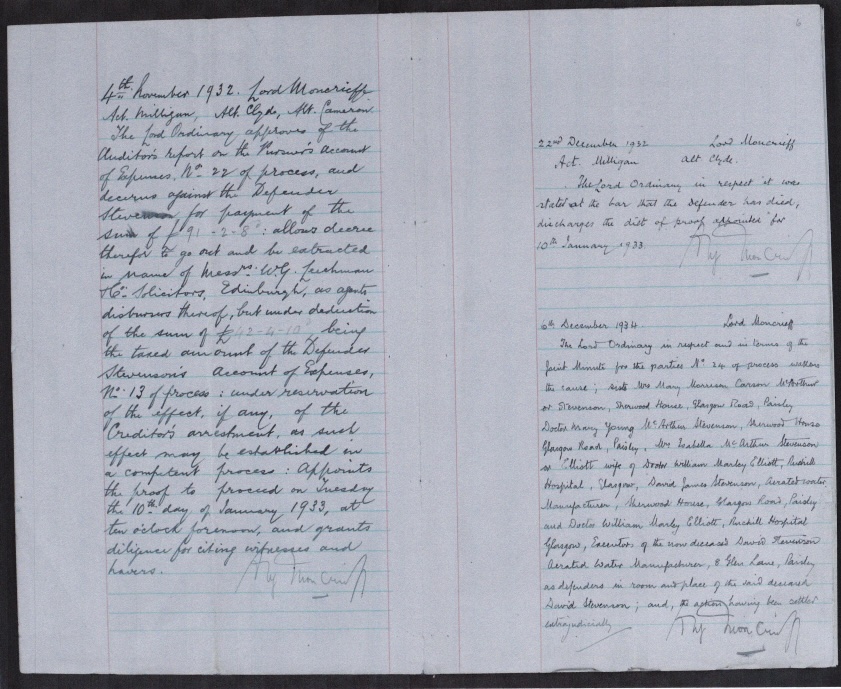 4th November 1932. Lord Moncrieff
Act. Milligan, Alt. Clyde, Alt. Cameron.
The Lord Ordinary approves of the
Auditor's report on the Pursuer's Account
of Expenses, No. 22 of process, and
decerns against the Defender
Stevenson for payment of the
sum of £91-2-8: allows decree
therefor to go out and be extracted
in name of Messrs. W.G. Leechman
& Co. Solicitors, Edinburgh, as agents
disbursers thereof, but under deduction
of the sum of £42-4-10, being
the taxed amount of the Defender
Stevenson's Account of Expenses,
No. 13 of process: under reservation
of the effect, if any, of the
Creditor's arrestment, as such
effect may be established in
a competent process: Appoints
the proof to proceed on Tuesday
the 10th day of January 1933, at
ten o'clock forenoon, and grants
diligence for citing witnesses and
havers.
Moncrieff
6
22nd December 1932 Lord Moncrieff
Act. Milligan alt Clyde.
The Lord Ordinary in respect it was
stated at the bar that the Defender has died,
discharges the diet of proof appointed for
10th January 1933.
Moncrieff
6th December 1934. Lord Moncrieff
The Lord Ordinary in respect and in terms of the
Joint Minute for the parties No. 24 of process
the cause; sists Mrs Mary Morrison Carson McArthur
or Stevenson, Sherwood House, Glasgow Road, Paisley
Doctor Mary Young McArthur Stevenson, Sherwood House
Glasgow Road, Paisley, Mrs Isabella McArthur Stevenson
or Elliott wife of Doctor William Marley Elliott, Ruchill
Hospital, Glasgow, David James Stevenson, Aerated water
Manufacturer, Sherwood House, Glasgow Road, Paisley
and Doctor William Marley Elliott, Ruchill Hospital
Glasgow, Executors of the now deceased David Stevenson
Aerated Water Manufacturer, 8 Glen Lane, Paisley
as defenders in room and place of the said deceased
David Stevenson; and, the action having been settled
extrajudicially
Moncrieff